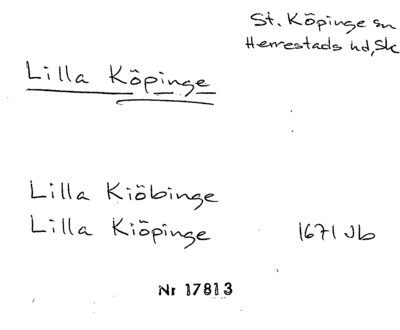 St. Köpinge sn
Herrestads hd, Sk
Lilla Köpinge
Lilla Kiöbinge
Lilla Kiöpinge 1671 Jb
Nr 17813